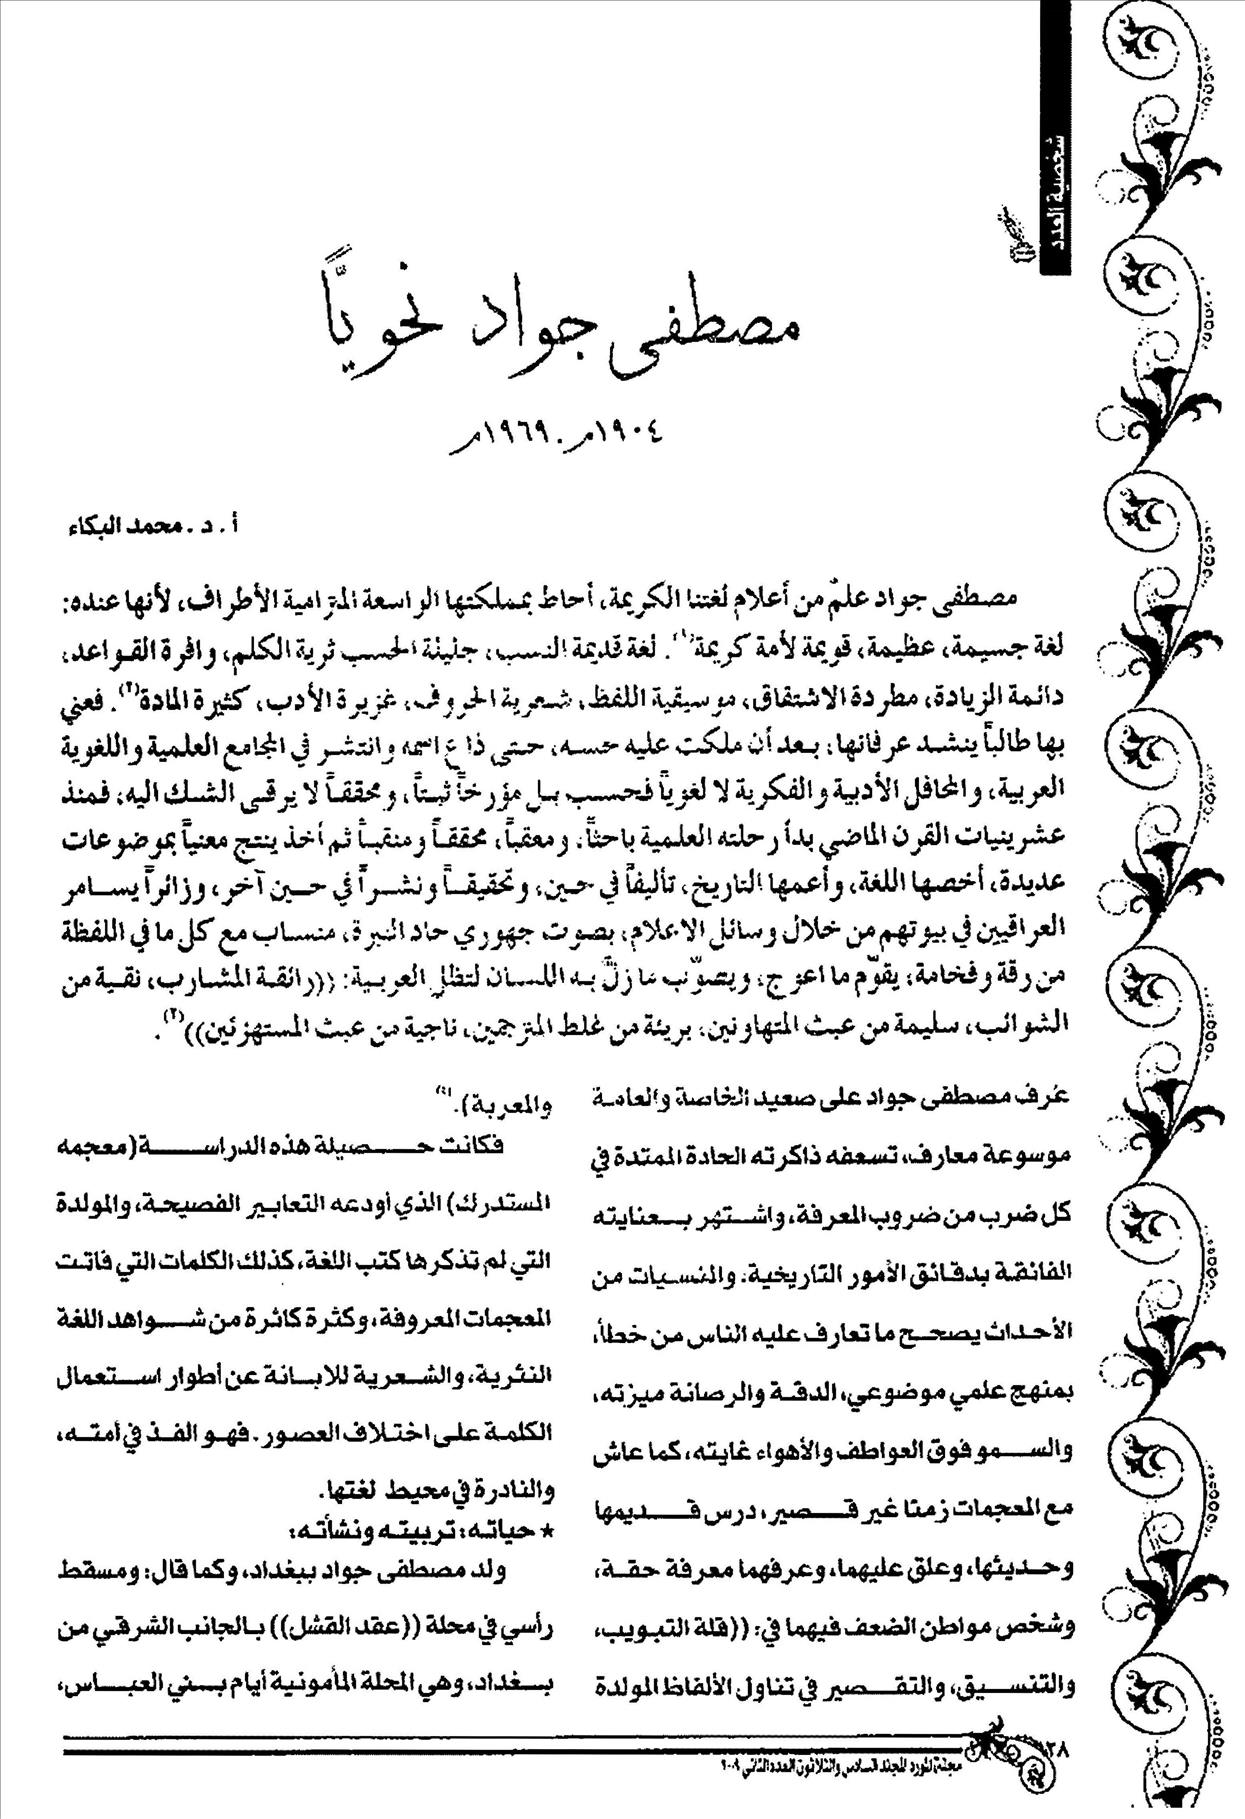 شخصية العدد
مصطفى جواد نحويّاً
١٩٠٤م . ١٩٦٩م
أ . د . محمد البكاء
مصطفى جواد علمٌ من أعلام لغتنا الكريمة، أحاط بمملكتها الواسعة المترامية الأطراف، لأنها عنده:
لغة جسيمة، عظيمة، قويمة لأمة كريمة(١). لغة قديمة النسب، جليلة الحسب ثرية الكلم، وافرة القواعد،
دائمة الزيادة، مطردة الاشتقاق، موسيقية اللفظ، شعرية الحروف، غزيرة الأدب، كثيرة المادة(٢). فعني
بها طالباً ينشد عرفانها، بعد أن ملكت عليه حسه، حتى ذاع اسمه وانتشر في المجامع العلمية واللغوية
العربية، والمحافل الأدبية والفكرية لا لغوياً فحسب بل مؤرخاً ثبتاً، ومحققاً لا يرقى الشك اليه، فمنذ
عشرينيات القرن الماضي بدأ رحلته العلمية باحثاً، ومعقباً، محققاً ومنقباً ثم أخذ ينتج معنياً بموضوعات
عديدة، أخصها اللغة، وأعمها التاريخ، تأليفاً في حين، وتحقيقاً ونشراً في حين آخر، وزائراً يسامر
العراقيين في بيوتهم من خلال وسائل الاعلام، بصوت جهوري حاد النبرة، منساب مع كل ما في اللفظة
من رقة وفخامة، يقوّم ما اعوج، ويصوّب ما زلّ به اللسان لتظل العربية: ((رائقة المشارب، نقية من
الشوائب، سليمة من عبث المتهاونين، بريئة من غلط المترجمين، ناجية من عبث المستهزئين))(٣).
عُرف مصطفى جواد على صعيد الخاصة والعامة
موسوعة معارف، تسعفه ذاكرته الحادة الممتدة في
كل ضرب من ضروب المعرفة، واشتهر بعنايته
الفائقة بدقائق الأمور التاريخية. والنسيات من
الأحداث يصحح ما تعارف عليه الناس من خطأ،
بمنهج علمي موضوعي، الدقة والرصانة ميزته،
والسمو فوق العواطف والأهواء غايته، كما عاش
مع المعجمات زمنا غير قصير، درس قديمها
وحديثها، وعلق عليهما، وعرفهما معرفة حقة،
وشخص مواطن الضعف فيهما في: ((قلة التبويب،
والتنسيق، والتقصير في تناول الألفاظ المولدة
والمعربة).(٤)
فكانت حصيلة هذه الدراسة (معجمه
المستدرك) الذي أودعه التعابير الفصيحة، والمولدة
التي لم تذكرها كتب اللغة، كذلك الكلمات التي فاتت
المعجمات المعروفة، وكثرة كاثرة من شواهد اللغة
النثرية، والشعرية للابانة عن أطوار استعمال
الكلمة على اختلاف العصور. فهو الفذ في أمته،
والنادرة في محيط لغتها.
★ حياته: تربيته ونشأته:
ولد مصطفى جواد ببغداد، وكما قال: ومسقط
رأسي في محلة ((عقد القشل)) بالجانب الشرقي من
بغداد، وهي المحلة المأمونية أيام بني العباس،
مجلة المورد المجلد السادس والثلاثون العدد الثاني ٢٠٠٩